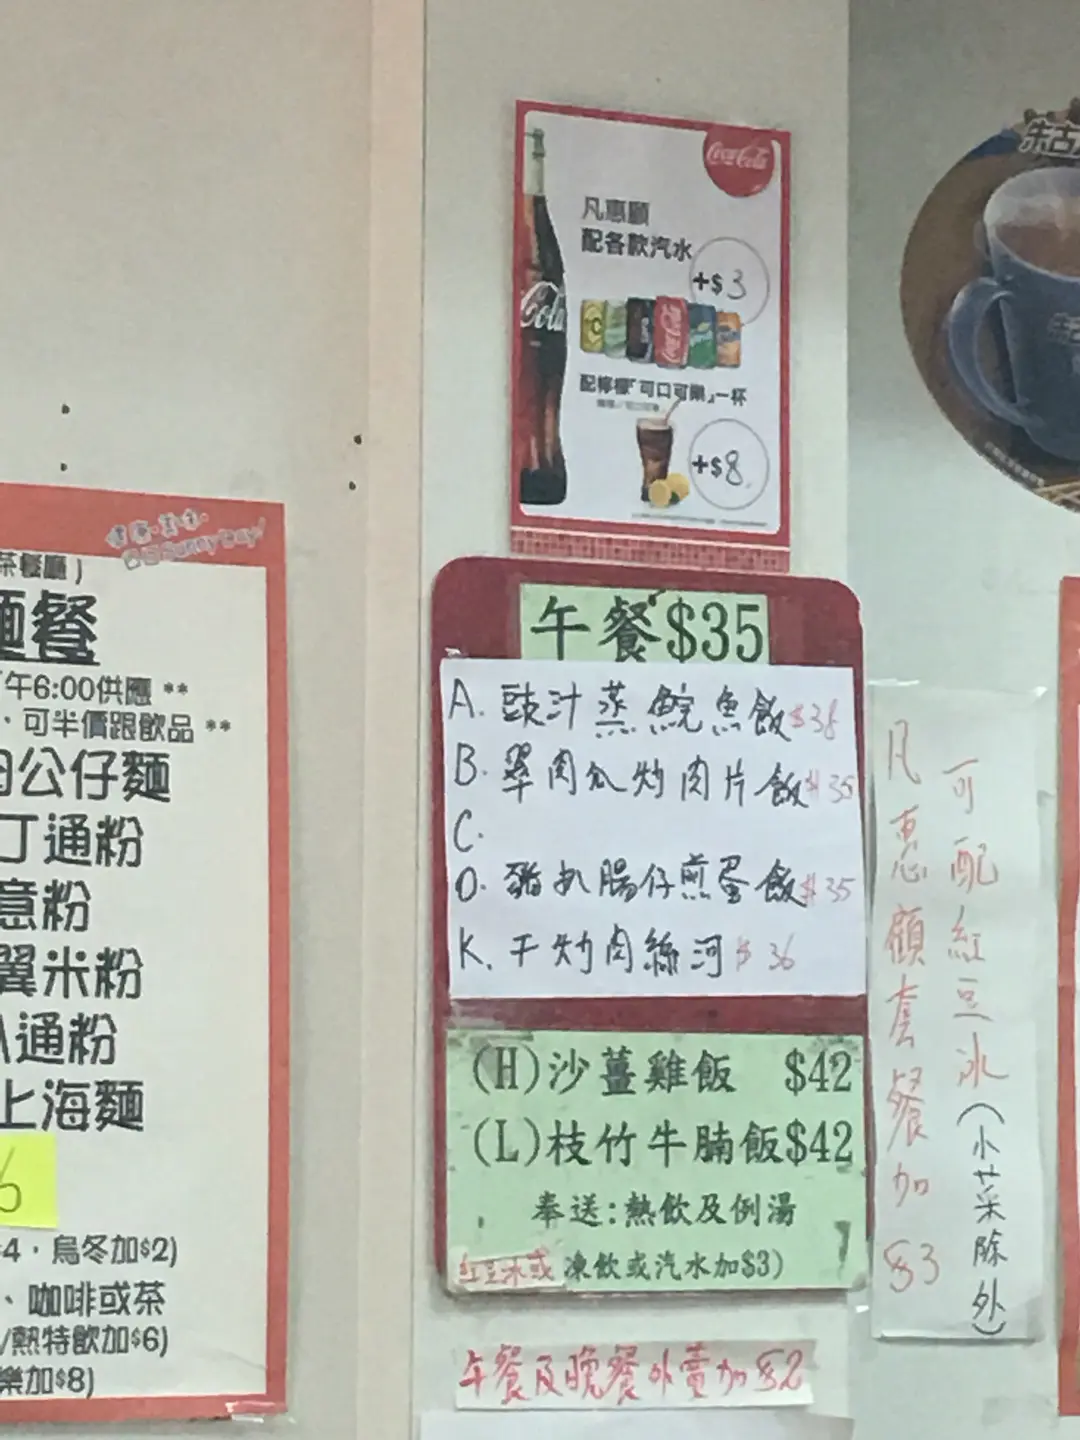 Coca-Cola
凡惠顧
配各款汽水
+$3
Cola
配檸檬「可口可樂」一杯
+$8
午餐$35
A. 豉汁蒸鯇魚飯$38
B. 翠肉瓜炒肉片飯$35
C.
D. 豬扒腸仔煎蛋飯$35
K. 干炒肉絲河$36
(H)沙薑雞飯 $42
(L)枝竹牛腩飯$42
奉送:熱飲及例湯
紅豆冰或凍飲或汽水加$3)
午餐及晚餐外賣加$2
凡惠顧套餐加$3
可配紅豆冰(小菜除外)
Sunny Day!
茶餐廳)
麵餐
午6:00供應 **
、可半價跟飲品 **
肉公仔麵
丁通粉
意粉
翼米粉
通粉
上海麵
6
$4,烏冬加$2)
、咖啡或茶
/熱特飲加$6)
樂加$8)
朱古